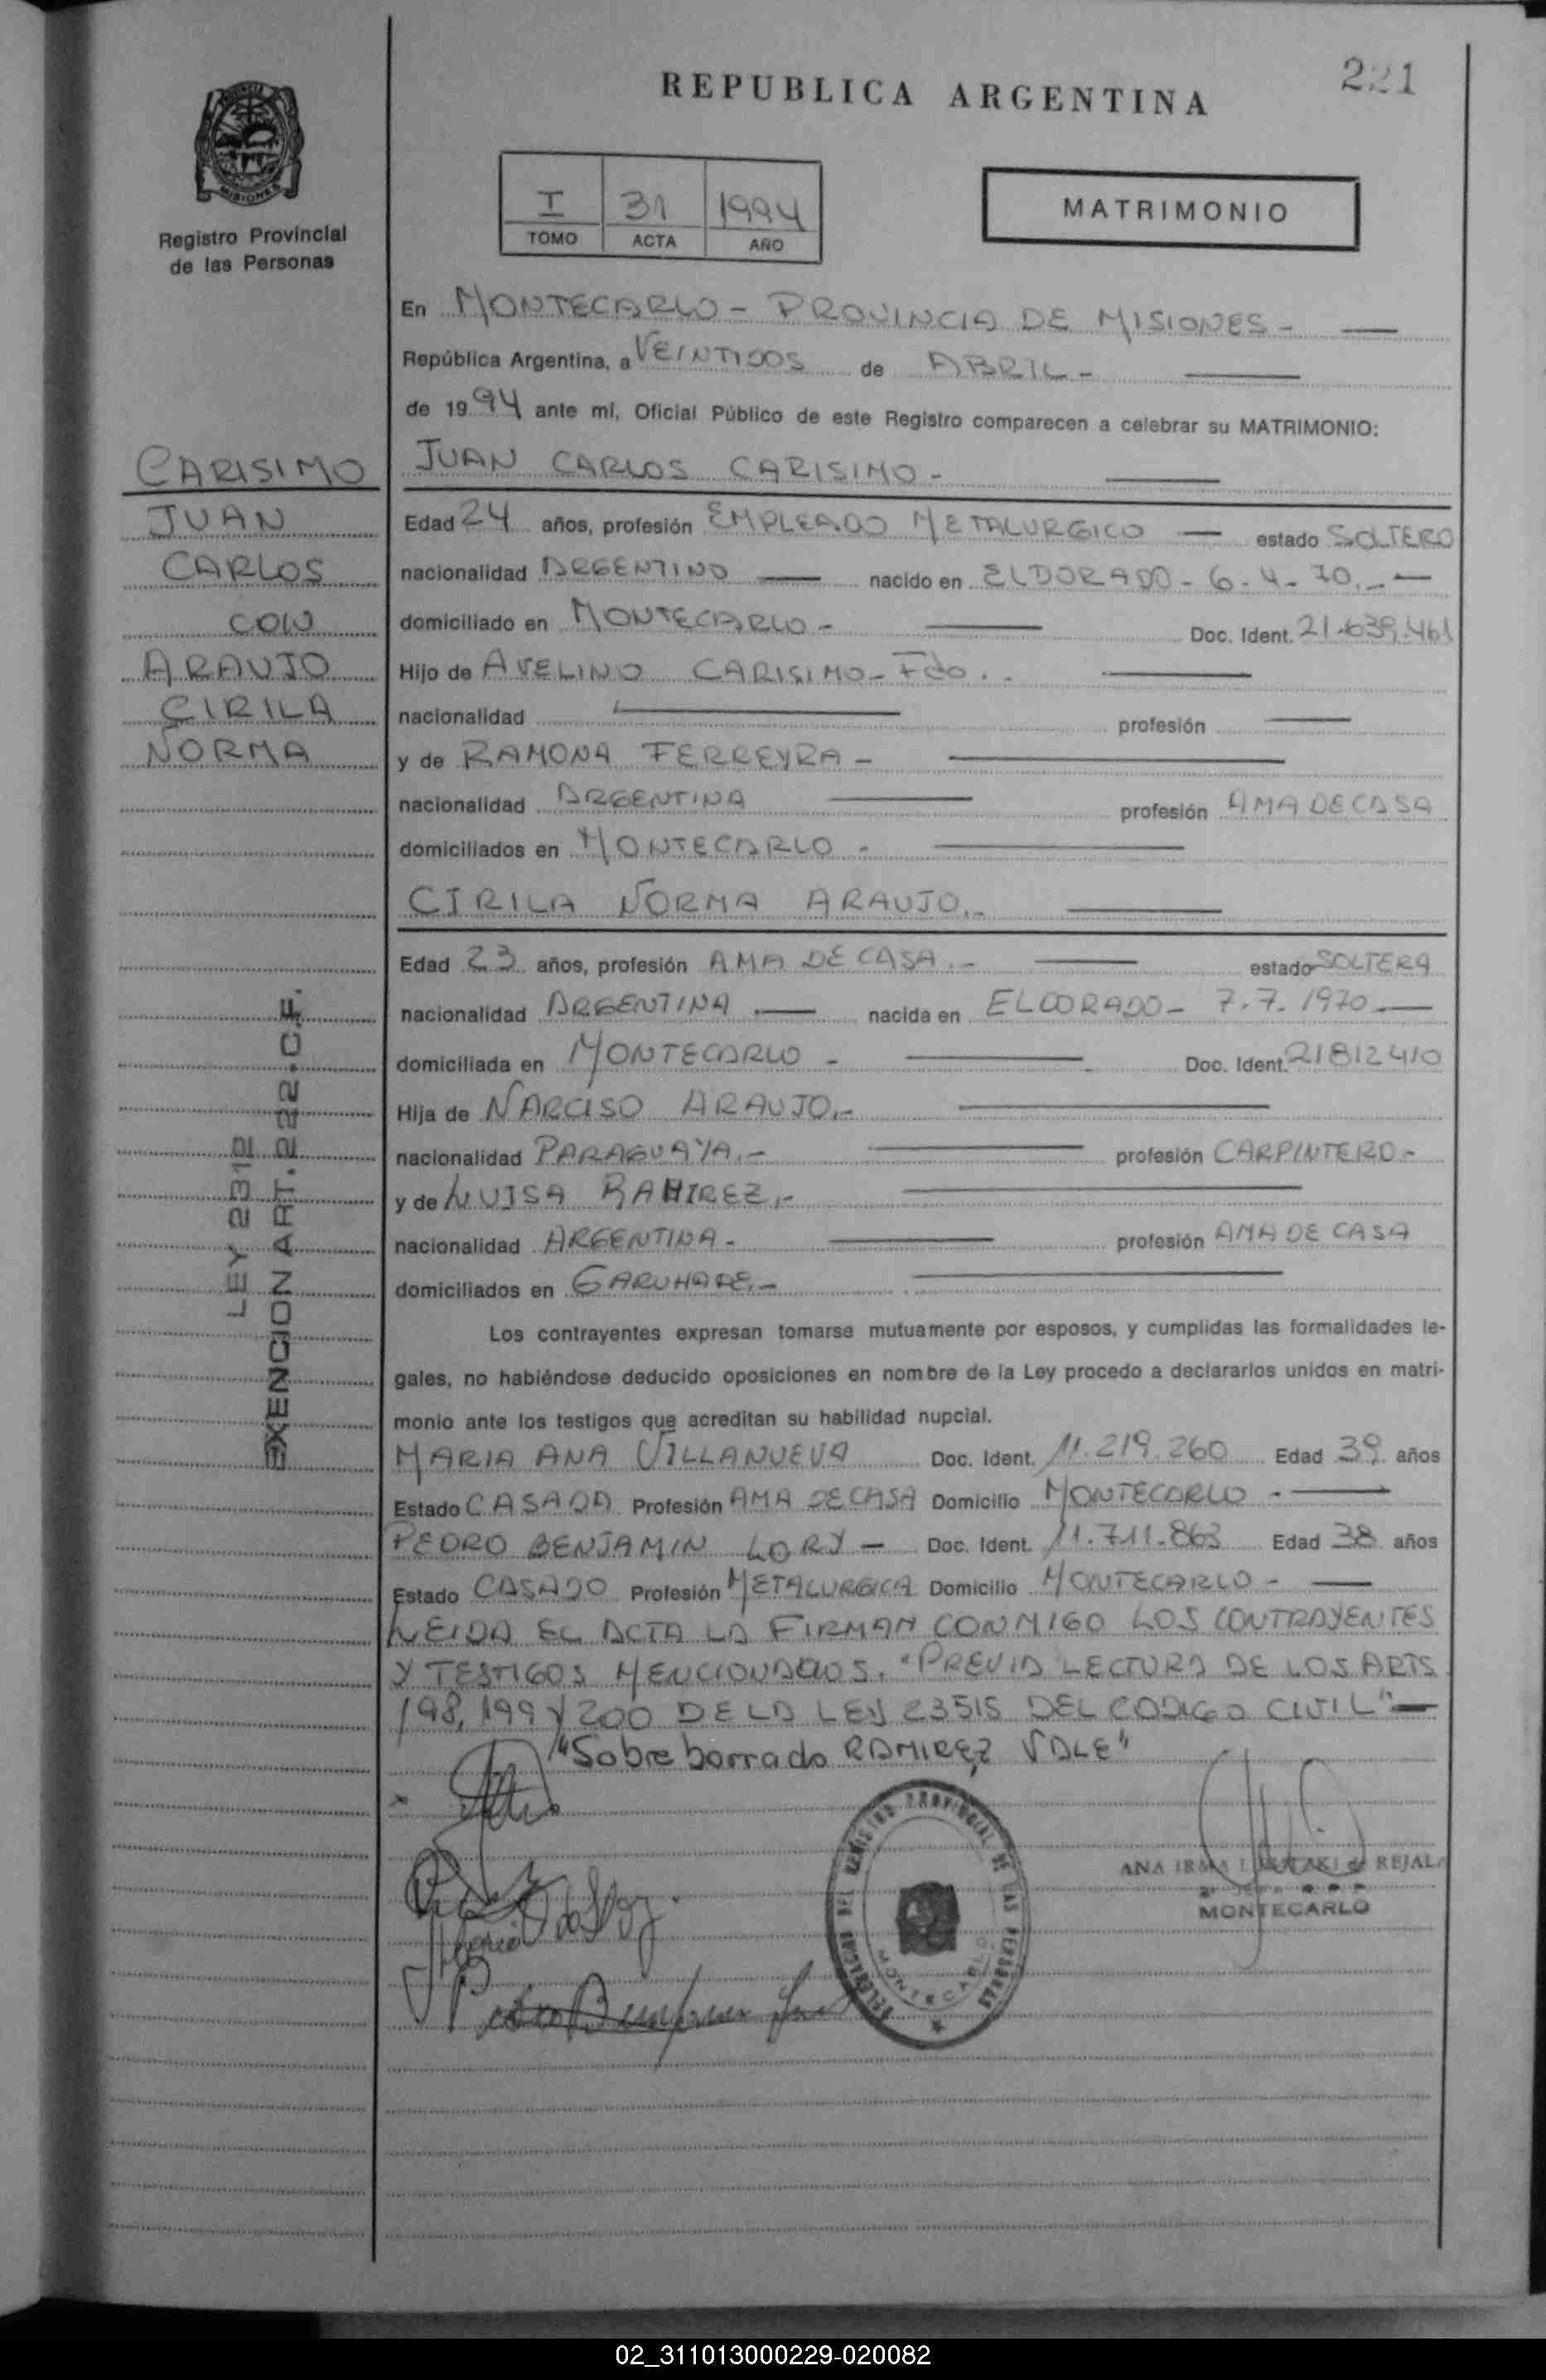 221
REPUBLICA ARGENTINA
MISIONES
Registro Provincial
de las Personas
I 31 1994
TOMO ACTA AÑO
MATRIMONIO
En MONTECARLO - PROVINCIA DE MISIONES -
República Argentina, a VEINTIDOS de ABRIL -
de 1994 ante mí, Oficial Público de este Registro comparecen a celebrar su MATRIMONIO:
CARISIMO
JUAN
CARLOS
CON
ARAUJO
CIRILA
NORMA
LEY 2312
EXENCION ART. 222.C.F.
JUAN CARLOS CARISIMO -
Edad 24 años, profesión EMPLEADO METALURGICO estado SOLTERO
nacionalidad ARGENTINO nacido en ELDORADO - 6 - 4 - 70.-
domiciliado en MONTECARLO - Doc. Ident. 21.639.461
Hijo de AVELINO CARISIMO - Fdo..
nacionalidad profesión
y de RAMONA FERREYRA -
nacionalidad ARGENTINA profesión AMA DE CASA
domiciliados en MONTECARLO -
CIRILA NORMA ARAUJO.-
Edad 23 años, profesión AMA DE CASA.- estado SOLTERA
nacionalidad ARGENTINA.- nacida en ELDORADO - 7.7.1970.-
domiciliada en MONTECARLO - Doc. Ident. 21812410
Hija de NARCISO ARAUJO.-
nacionalidad PARAGUAYA.- profesión CARPINTERO.-
y de LUISA RAMIREZ.-
nacionalidad ARGENTINA - profesión AMA DE CASA
domiciliados en GARUHAPE.-
Los contrayentes expresan tomarse mutuamente por esposos, y cumplidas las formalidades le-
gales, no habiéndose deducido oposiciones en nombre de la Ley procedo a declararlos unidos en matri-
monio ante los testigos que acreditan su habilidad nupcial.
MARIA ANA VILLANUEVA Doc. Ident. 11.219.260 Edad 39 años
Estado CASADA Profesión AMA DE CASA Domicilio MONTECARLO -
PEDRO BENJAMIN LORY - Doc. Ident. 11.711.863 Edad 38 años
Estado CASADO Profesión METALURGICA Domicilio MONTECARLO -
LEIDA EL ACTA LA FIRMAN CONMIGO LOS CONTRAYENTES
Y TESTIGOS MENCIONADOS. "PREVIA LECTURA DE LOS ARTS
198, 199 Y 200 DE LA LEY 23515 DEL CODIGO CIVIL" -
"Sobre borrado RAMIREZ VALE"
DELEGACION DEL REGISTRO PROVINCIAL DE LAS PERSONAS
MONTECARLO
ANA IRMA de REJALA
MONTECARLO
Pedro Benjamin
02_311013000229-020082